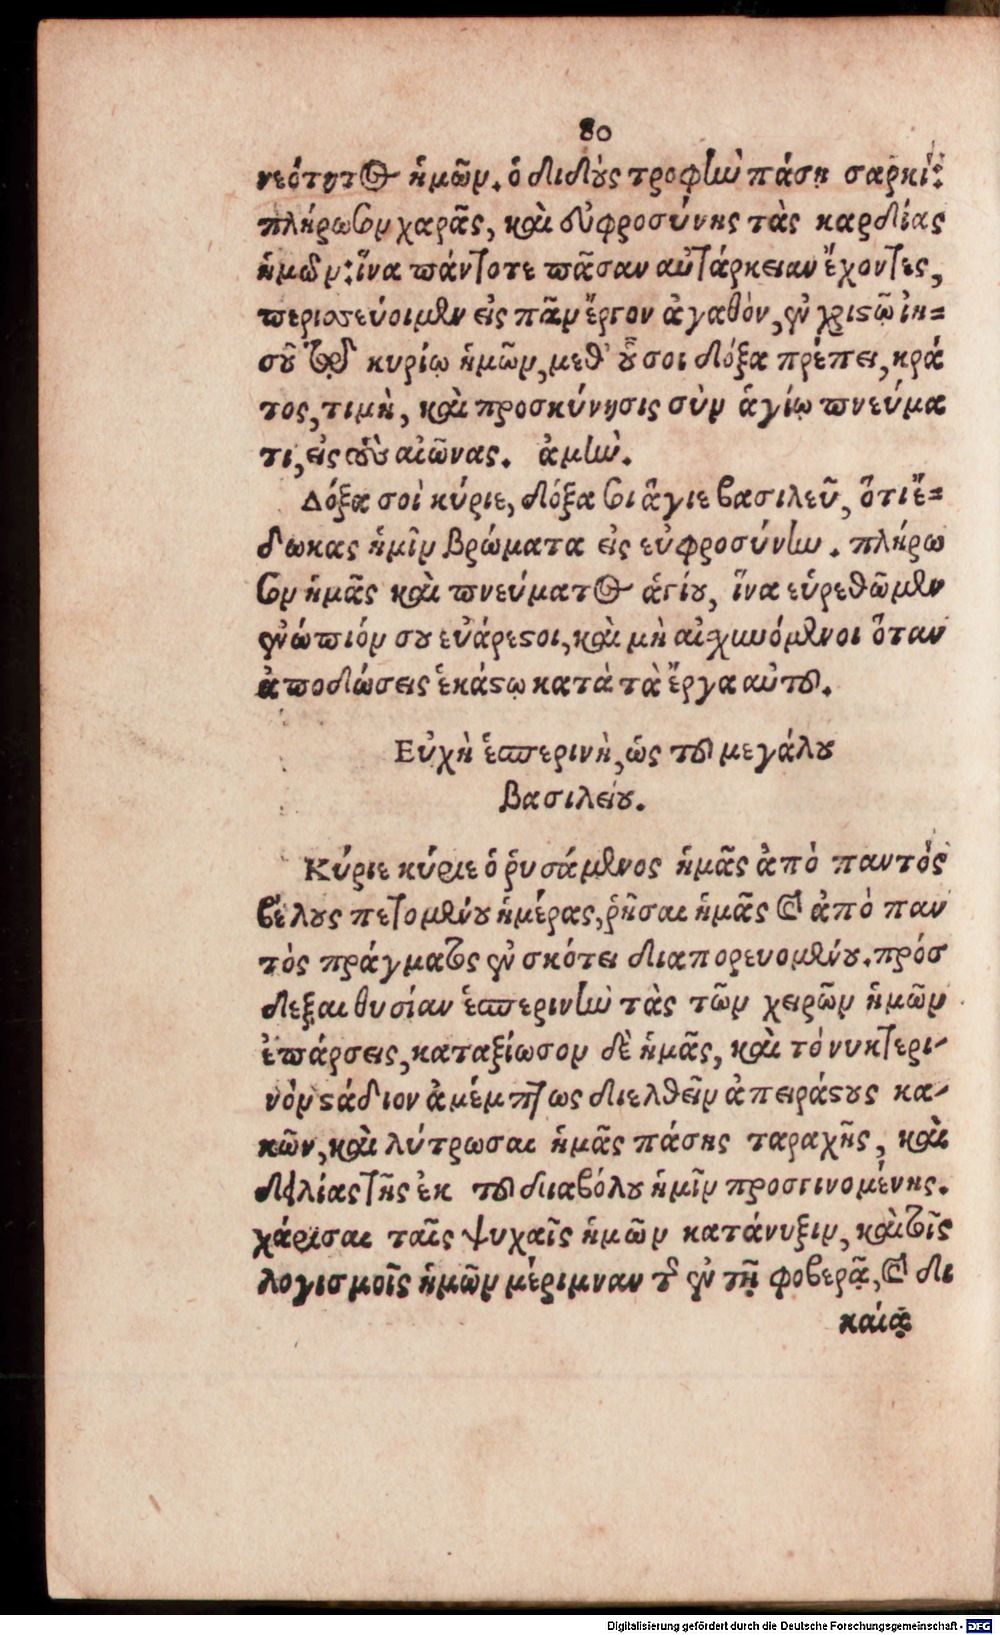 80
νεότητος ἡμῶν. ὁ διδοὺς τροφὴν πάσῃ σαρκί:
πλήρωσον χαρᾶς, καὶ εὐφροσύνης τὰς καρδίας
ἡμῶν: ἵνα πάντοτε πᾶσαν αὐτάρκειαν ἔχοντες,
περισσεύοιμεν εἰς πᾶν ἔργον ἀγαθὸν, ἐν χριστῷ ἰη=
σοῦ τῷ κυρίῳ ἡμῶν, μεθ' οὗ σοι δόξα πρέπει, κρά
τος, τιμὴ, καὶ προσκύνησις σὺν ἁγίῳ πνεύμα
τι, εἰς τοὺς αἰῶνας. ἀμήν.
Δόξα σοὶ κύριε, δόξα σοι ἅγιε βασιλεῦ, ὅτι ἔ=
δωκας ἡμῖν βρώματα εἰς εὐφροσύνην. πλήρω
σον ἡμᾶς καὶ πνεύματος ἁγίου, ἵνα εὑρεθῶμεν
ἐνώπιόν σου εὐάρεστοι, καὶ μὴ αἰσχυνόμενοι ὅταν
ἀποδώσεις ἑκάστῳ κατὰ τὰ ἔργα αὐτοῦ.
Εὐχὴ ἑσπερινὴ, ὡς τοῦ μεγάλου
βασιλείου.
Κύριε κύριε ὁ ῥυσάμενος ἡμᾶς ἀπὸ παντὸς
βέλους πετομένου ἡμέρας, ῥῆσαι ἡμᾶς καὶ ἀπὸ παν
τὸς πράγματος ἐν σκότει διαπορευομένου. πρόσ
δεξαι θυσίαν ἑσπερινὴν τὰς τῶν χειρῶν ἡμῶν
ἐπάρσεις, καταξίωσον δὲ ἡμᾶς, καὶ τὸ νυκτερι-
νὸν στάδιον ἀμέμπτως διελθεῖν ἀπειράστους κα-
κῶν, καὶ λύτρωσαι ἡμᾶς πάσης ταραχῆς, καὶ
δειλίας τῆς ἐκ τοῦ διαβόλου ἡμῖν προσγινομένης.
χάρισαι ταῖς ψυχαῖς ἡμῶν κατάνυξιν, καὶ τοῖς
λογισμοῖς ἡμῶν μέριμναν τῆς ἐν τῇ φοβερᾷ, καὶ δι
καίᾳ
Digitalisierung gefördert durch die Deutsche Forschungsgemeinschaft - DFG